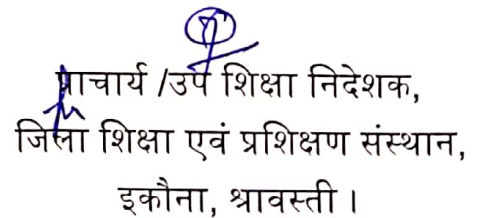 प्राचार्य /उप शिक्षा निदेशक,
जिला शिक्षा एवं प्रशिक्षण संस्थान,
इकौना, श्रावस्ती ।